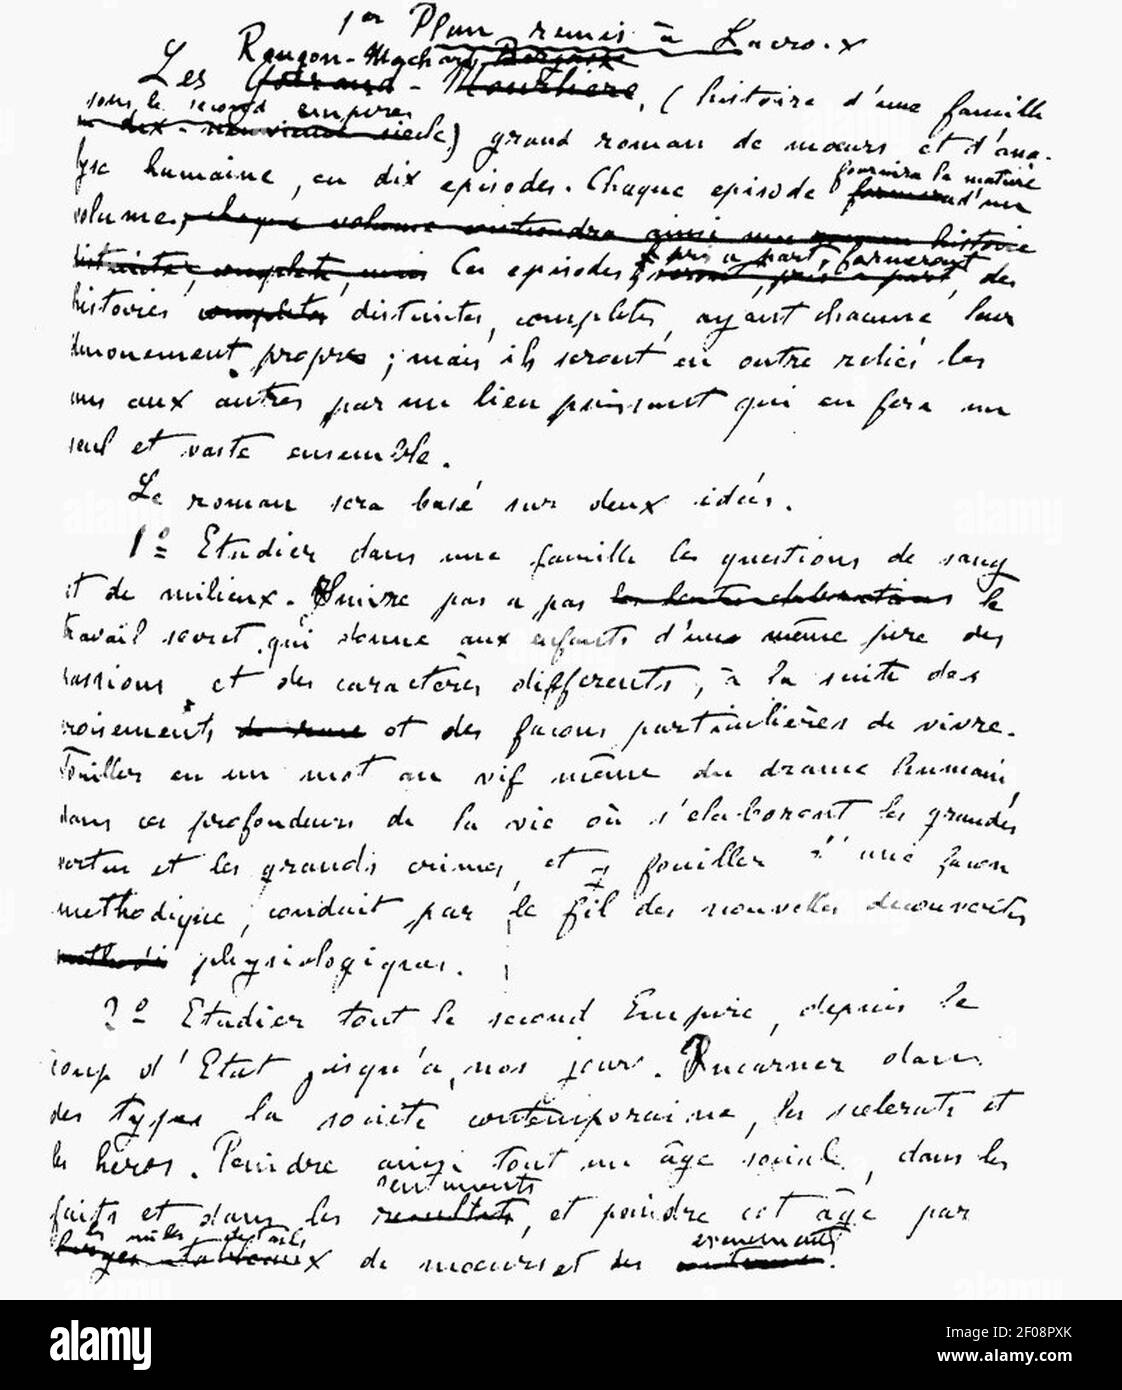 1er Plan remis à Lacroix
Rougon-Machard
Les Goiraud - Mourlière, (histoire d'une famille
sous le second empire
au dix-neuvième siècle) grand roman de mœurs et d'ana-
lyse humaine, en dix episodes. Chaque episode fournira la matière
formera d'un
volume, chaque volume contiendra ainsi une histoire
distincte, complète, mais Ces episodes pris à part, formeront
seront, pris a part, des
histoires completes distinctes, completes, ayant chacune leur
denouement propre ; mais ils seront en outre reliés les
uns aux autres par un lien puissant qui en fera un
seul et vaste ensemble.
Le roman sera basé sur deux idées.
1º Etudier dans une famille les questions de sang
et de milieux. Suivre pas a pas le
travail secret qui donne aux enfants d'un même pere des
passions et des caractères differents, à la suite des
croisements et des façons particulières de vivre.
Fouiller en un mot au vif même du drame humain,
dans ces profondeurs de la vie où s'elaborent les grandes
vertus et les grands crimes, et y fouiller d'une façon
methodique, conduit par le fil des nouvelles decouvertes
physiologiques.
2º Etudier tout le second Empire, depuis le
coup d'Etat jusqu'a nos jours. Incarner dans
des types la societe contemporaine, les scelerats et
les héros. Peindre ainsi tout un âge social, dans les
sentiments
faits et dans les resultats, et peindre cet âge par
les milles details evenements
larges tableaux de mœurs et des
alamy
Image ID: 2F08PXK
www.alamy.com